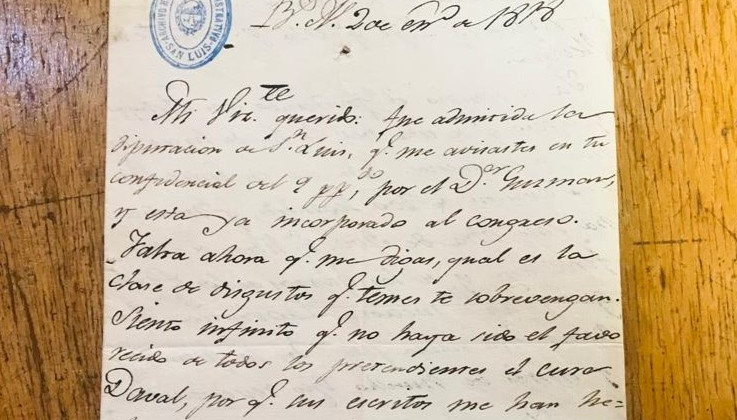 SAN LUIS
B.s A.s 2 de en.o de 1818
Mi Vic.te querido: fue admitida la
diputacion de S.n Luis, q.e me avisastes en tu
confidencial del 9 pp.do, por el D.or Guzman,
y esta ya incorporado al congreso.
Falta ahora q.e me digas, qual es la
clase de disgustos q.e temes te sobrevengan.
Siento infinito q.e no haya sido el favo
recido de todos los pretendientes el cura
Daval, por q.e sus escritos me han he=